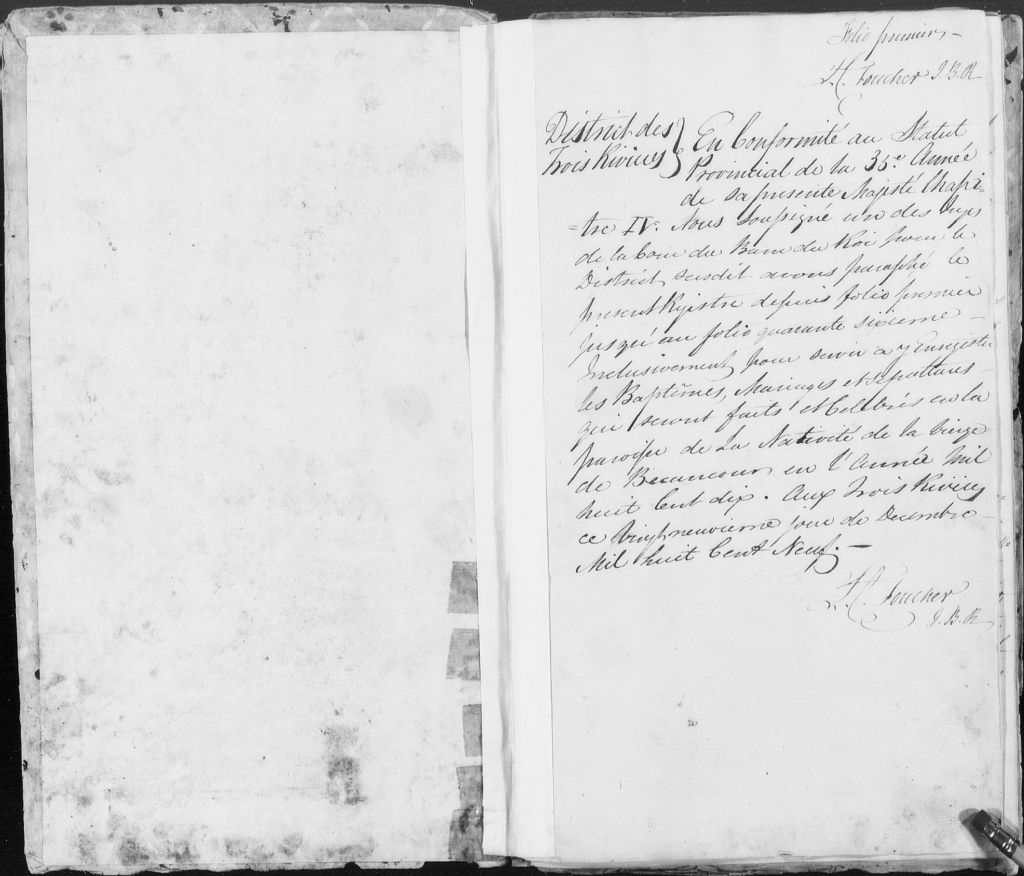 Folio premier,—
L. C. Foucher J. B. R.
District des
Trois Rivieres } En Conformité au Statut
Provincial de la 35.e Année
de sa presente Majesté Chapi-
-tre IV. Nous soussigné un des Juges
de la Cour du Banc du Roi pour le
District susdit avons paraphé le
present Registre depuis folio premier
jusqu'au folio quarante sixieme —
Inclusivement, pour servir a y Enregistrer
les Baptêmes, Mariages et Sepultures
qui seront faits et Celebrés en la
paroisse de La Nativité de la Vierge
de Becancour, en l'Année Mil
huit Cent dix. Aux Trois Rivieres
ce Vingt neuvieme jour de Decembre
Mil huit Cent Neuf. —
L. C. Foucher
J. B. R.